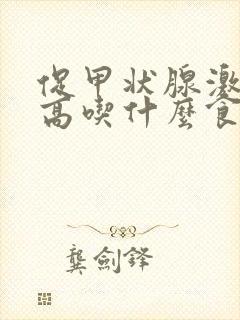 促甲状腺激
高喫什麼食
龔劍鋒